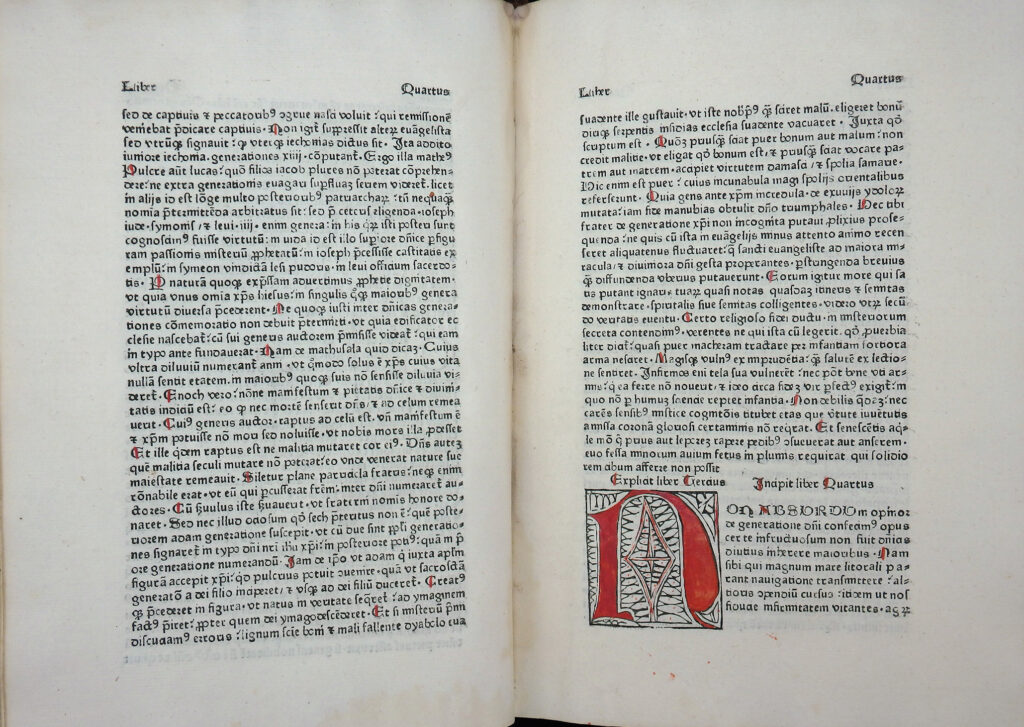 Liber Quartus
sed de captiuis ⁊ peccatorib⁹ ꝯgrue nasci voluit ⁊ qui remissionē
veniebat p̄dicare captiuis. Non igit̄ supp̄ressit alteꝝ euāgelista
sed vtrūꝙ signauit ⁊ ꝙ vterꝙ iechonias dictus sit. Ita addito
iuniore iechonia. generationes xiiij. cōputant̄. Ergo illa mathe⁹
Pulcre aūt lucas ⁊ quō filios iacob plures nō poterat cōprehen-
dere ⁊ ne extra generationis euagari supfluaꝫ seriem videret̄. licet
in alijs id est lōge multo posteriorib⁹ patriarchaꝝ ⁊ tn̄ nequaꝙ
nomīa p̄termittēda arbitratus sit ⁊ sed p̄ ceteris eligenda. ioseph
iude. symonis ⁊ leui. iiij. enim genera ⁊ in his q̄ꝝ isti posteri sunt
cognoscim⁹ fuisse virtutū ⁊ in iuda id est illo superiore dn̄ice p̄figu
ram passionis misteriū ꝓphetatū ⁊ in ioseph p̄cessisse castitatis ex
emplū ⁊ in symeon vindictā lesi pudoris. in leui officium sacerdo-
tis. P naturā quoꝙ exp̄ssam aduertimus ꝓphetie dignitatem.
vt quia vnus omīa xp̄s hiesus ⁊ in singulis q̄ꝙ maiorib⁹ genera
virtutū diuersa p̄cederent̄. Nec quoꝙ iusti inter dn̄icas genera-
tiones cōmemoratio non debuit p̄termitti. vt quia edificator ec
clesie nascebat̄ ⁊ cū sui generis auctorem p̄misisse videat̄ ⁊ qui eam
in typo ante fundauerat. Nam de mathusala quid dicaꝫ. Cuius
vltra diluuiū numerant̄ anni. vt quō solus ē xp̄s cuius vita
nullā sentit etatem. in maiorib⁹ quoꝙ suis nō sensisse diluuia vi-
deret̄. Enoch vero ⁊ nōne manifestum ⁊ pietatis dn̄ice ⁊ diuini-
tatis indiciū est ⁊ eo ꝙ nec mortē senserit dn̄s ⁊ ad celum remea
uerit. Cui⁹ generis auctor. raptus ad celū est. vn̄ manifestum ē
⁊ xp̄m potuisse nō mori sed noluisse. vt nobis mors illa ꝓdesset
Et ille quidem raptus est ne malitia mutaret cor ei⁹. Dn̄s auteꝫ
quē malitia seculi mutare nō poterat ⁊ eo vnde venerat nature sue
maiestate remeauit. Siletur plane parricida fratris ⁊ neꝙ enim
rōnabile erat. vt eū qui ꝑcusserat frēm ⁊ inter dn̄i numeraret̄ au-
ctores. Cū seruulus iste seruauerit. vt fraterni nomīs honore do-
naret̄. Sed nec illud ociosum quō sech p̄teritus non ē ⁊ quē poste-
riorem adam generatione suscepit. vt cū due sint ppli generatio-
nes signaret̄ in typo dn̄i nr̄i ihu xp̄i ⁊ in posteriore poti⁹ ⁊ quā in p̄
ore generatione numerandū. Iam de ip̄o vt adam q̄ iuxta aplm
figurā accepit xp̄i ⁊ qd̄ pulcrius potuit ꝯuenire. quā vt sacrosctā
generatō a dei filio inciperet ⁊ vsꝙ ad dei filiū duceret̄. Creat⁹
ꝙ p̄cederet in figura. vt natus in veritate seqret̄ ⁊ ad ymaginem
fact⁹ p̄iret ⁊ ꝓpter quem dei ymago descēderet. Et si misteriū p̄mi
discutiam⁹ erroris ⁊ lignum scie boni ⁊ mali fallente dyabolo cua
Liber Quartus
suadente ille gustauit. vt iste nob̄ p⁹ ꝙ sciret malū. eligeret bonū
dicꝙ serpentis insidias ecclesia suadente vacuaret. Juxta qd̄
scriptum est. Quō priusꝙ sciat puer bonum aut malum ⁊ non
credit malitie. vt eligat qd̄ bonum est ⁊ priusꝙ sciat vocare pa-
trem aut matrem. accipiet virtutem damasci ⁊ spolia samarie.
Hic enim est puer ⁊ cuius incunabula magi spolijs orientalibus
referserunt. Quia gens ante xp̄m incredula ⁊ de exuuijs ydoloꝝ
mutata ⁊ iam fidei manubias obtulit dn̄o triumphales. Nec tibi
frater de generatione xp̄i non incognita putaui ꝓlixius prose-
quenda ⁊ ne quis cū ista in euāgelijs minus attento animo recen
seret aliquatenus fluctuaret ⁊ q̄ sancti euangeliste ad maiora mi-
racula ⁊ diuiniora dn̄i gesta properantes. p̄stringenda breuius
q̄ diffundenda vberius putauerunt. Eorum igitur more qui sa
tis putant ignaris viarū quasi notas quasdaꝫ itineris ⁊ semitas
demonstrare. spiritalis siue semitas colligentes. videro vtrꝝ secū
do veritatis euentu. Certo religioso fidei ductu. in misteriorum
secreta contendim⁹. verentes ne qui ista cū legerit. qd̄ ꝓuerbia
liter dict̄ ⁊ quasi puer macheram tractare per infantiam fortiora
arma nesciret. Magisꝙ vuln⁹ ex imprudētia ⁊ q̄ salutē ex lectio-
ne sentiret. Infirmos eni tela sua vulnerēt ⁊ nec pōt bene vti ar-
mis ⁊ q̄ ea ferre nō nouerit ⁊ ideo circa fideꝫ vir pfect⁹ exigit̄ ⁊ in
quo nō ꝑ humuꝫ scientie reptet infantia. Non debilis qdeꝫ ⁊ nec
carēs sensib⁹ mistice cognitōis titubet etas que v̄tute iuuētutis
amissa coronā gloriosi certaminis nō reqrat. Et senescētis aq̄-
le mō q̄ prius aut leporeꝫ rapere pedib⁹ ꝯsueuerat aut anserem.
euo fessa minorum auium fetus in plumis requirat. qui solidio
rem cibum afferre non possit
Explicit liber Tercius Incipit liber Quartus
NON ABSURDUM opinor
de generatione dn̄i consecim⁹ opus
certe infructuosum non fuit diūcius
diutius inherere maioribus. Nam
sibi qui magnum mare litorali pa-
rant nauigatione transmittere ⁊ al-
tioris ꝯpendiū cursus ⁊ itidem ut nof
siouae infirmitatem vitantes. agꝝ